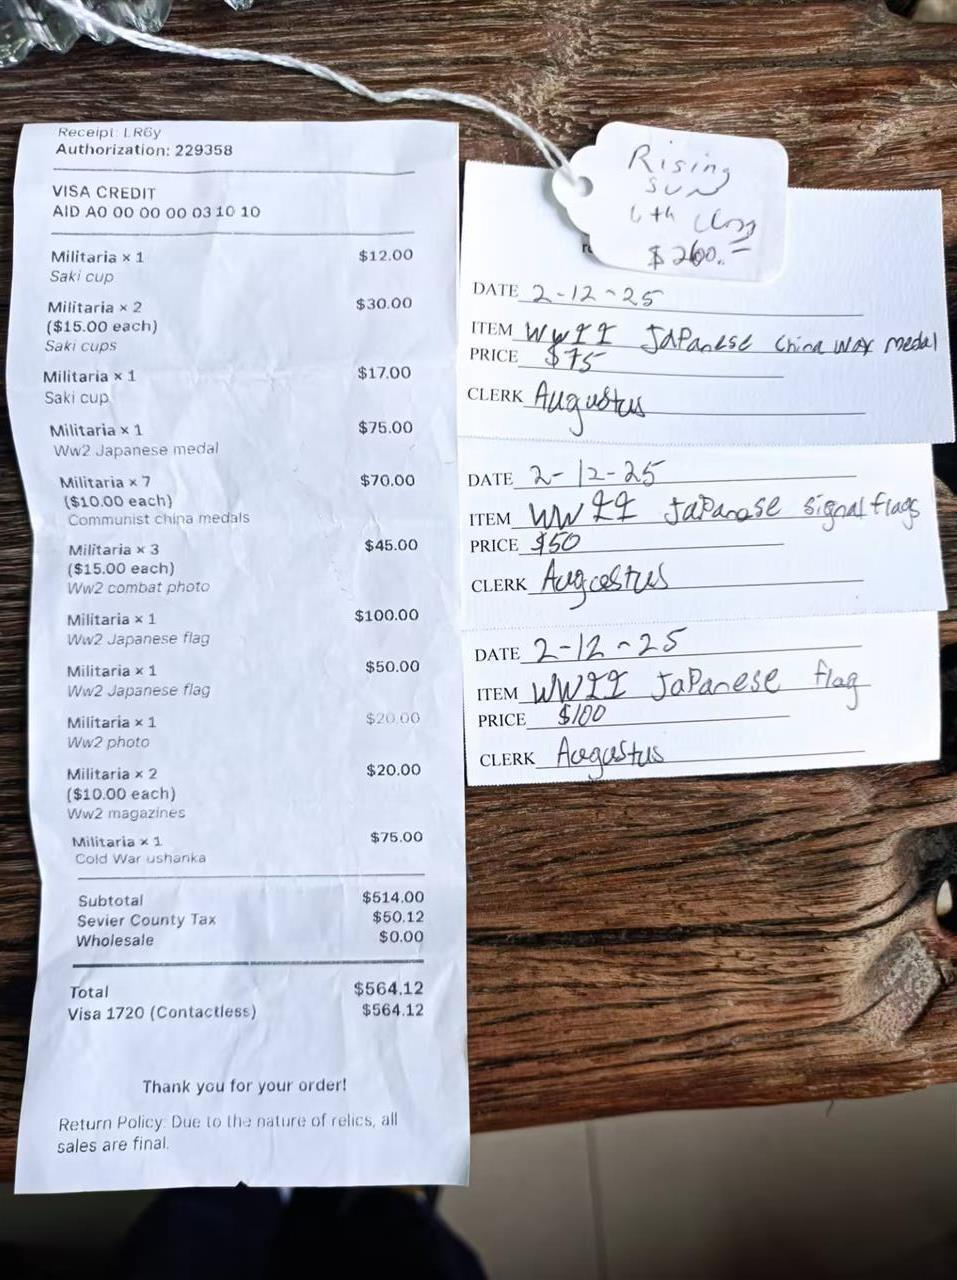 Receipt: LR6y
Authorization: 229358
VISA CREDIT
AID A0 00 00 00 03 10 10
Militaria × 1 $12.00
Saki cup
Militaria × 2 $30.00
($15.00 each)
Saki cups
Militaria × 1 $17.00
Saki cup
Militaria × 1 $75.00
Ww2 Japanese medal
Militaria × 7 $70.00
($10.00 each)
Communist china medals
Militaria × 3 $45.00
($15.00 each)
Ww2 combat photo
Militaria × 1 $100.00
Ww2 Japanese flag
Militaria × 1 $50.00
Ww2 Japanese flag
Militaria × 1 $20.00
Ww2 photo
Militaria × 2 $20.00
($10.00 each)
Ww2 magazines
Militaria × 1 $75.00
Cold War ushanka
Subtotal $514.00
Sevier County Tax $50.12
Wholesale $0.00
Total $564.12
Visa 1720 (Contactless) $564.12
Thank you for your order!
Return Policy: Due to the nature of relics, all
sales are final.
Rising
Sun
6th
$260.=
DATE 2-12-25
ITEM WWII JaPanese China war medal
PRICE $75
CLERK Augustus
DATE 2-12-25
ITEM WWII JaPanese signal flags
PRICE $50
CLERK Augustus
DATE 2-12-25
ITEM WWII JaPanese flag
PRICE $100
CLERK Augustus